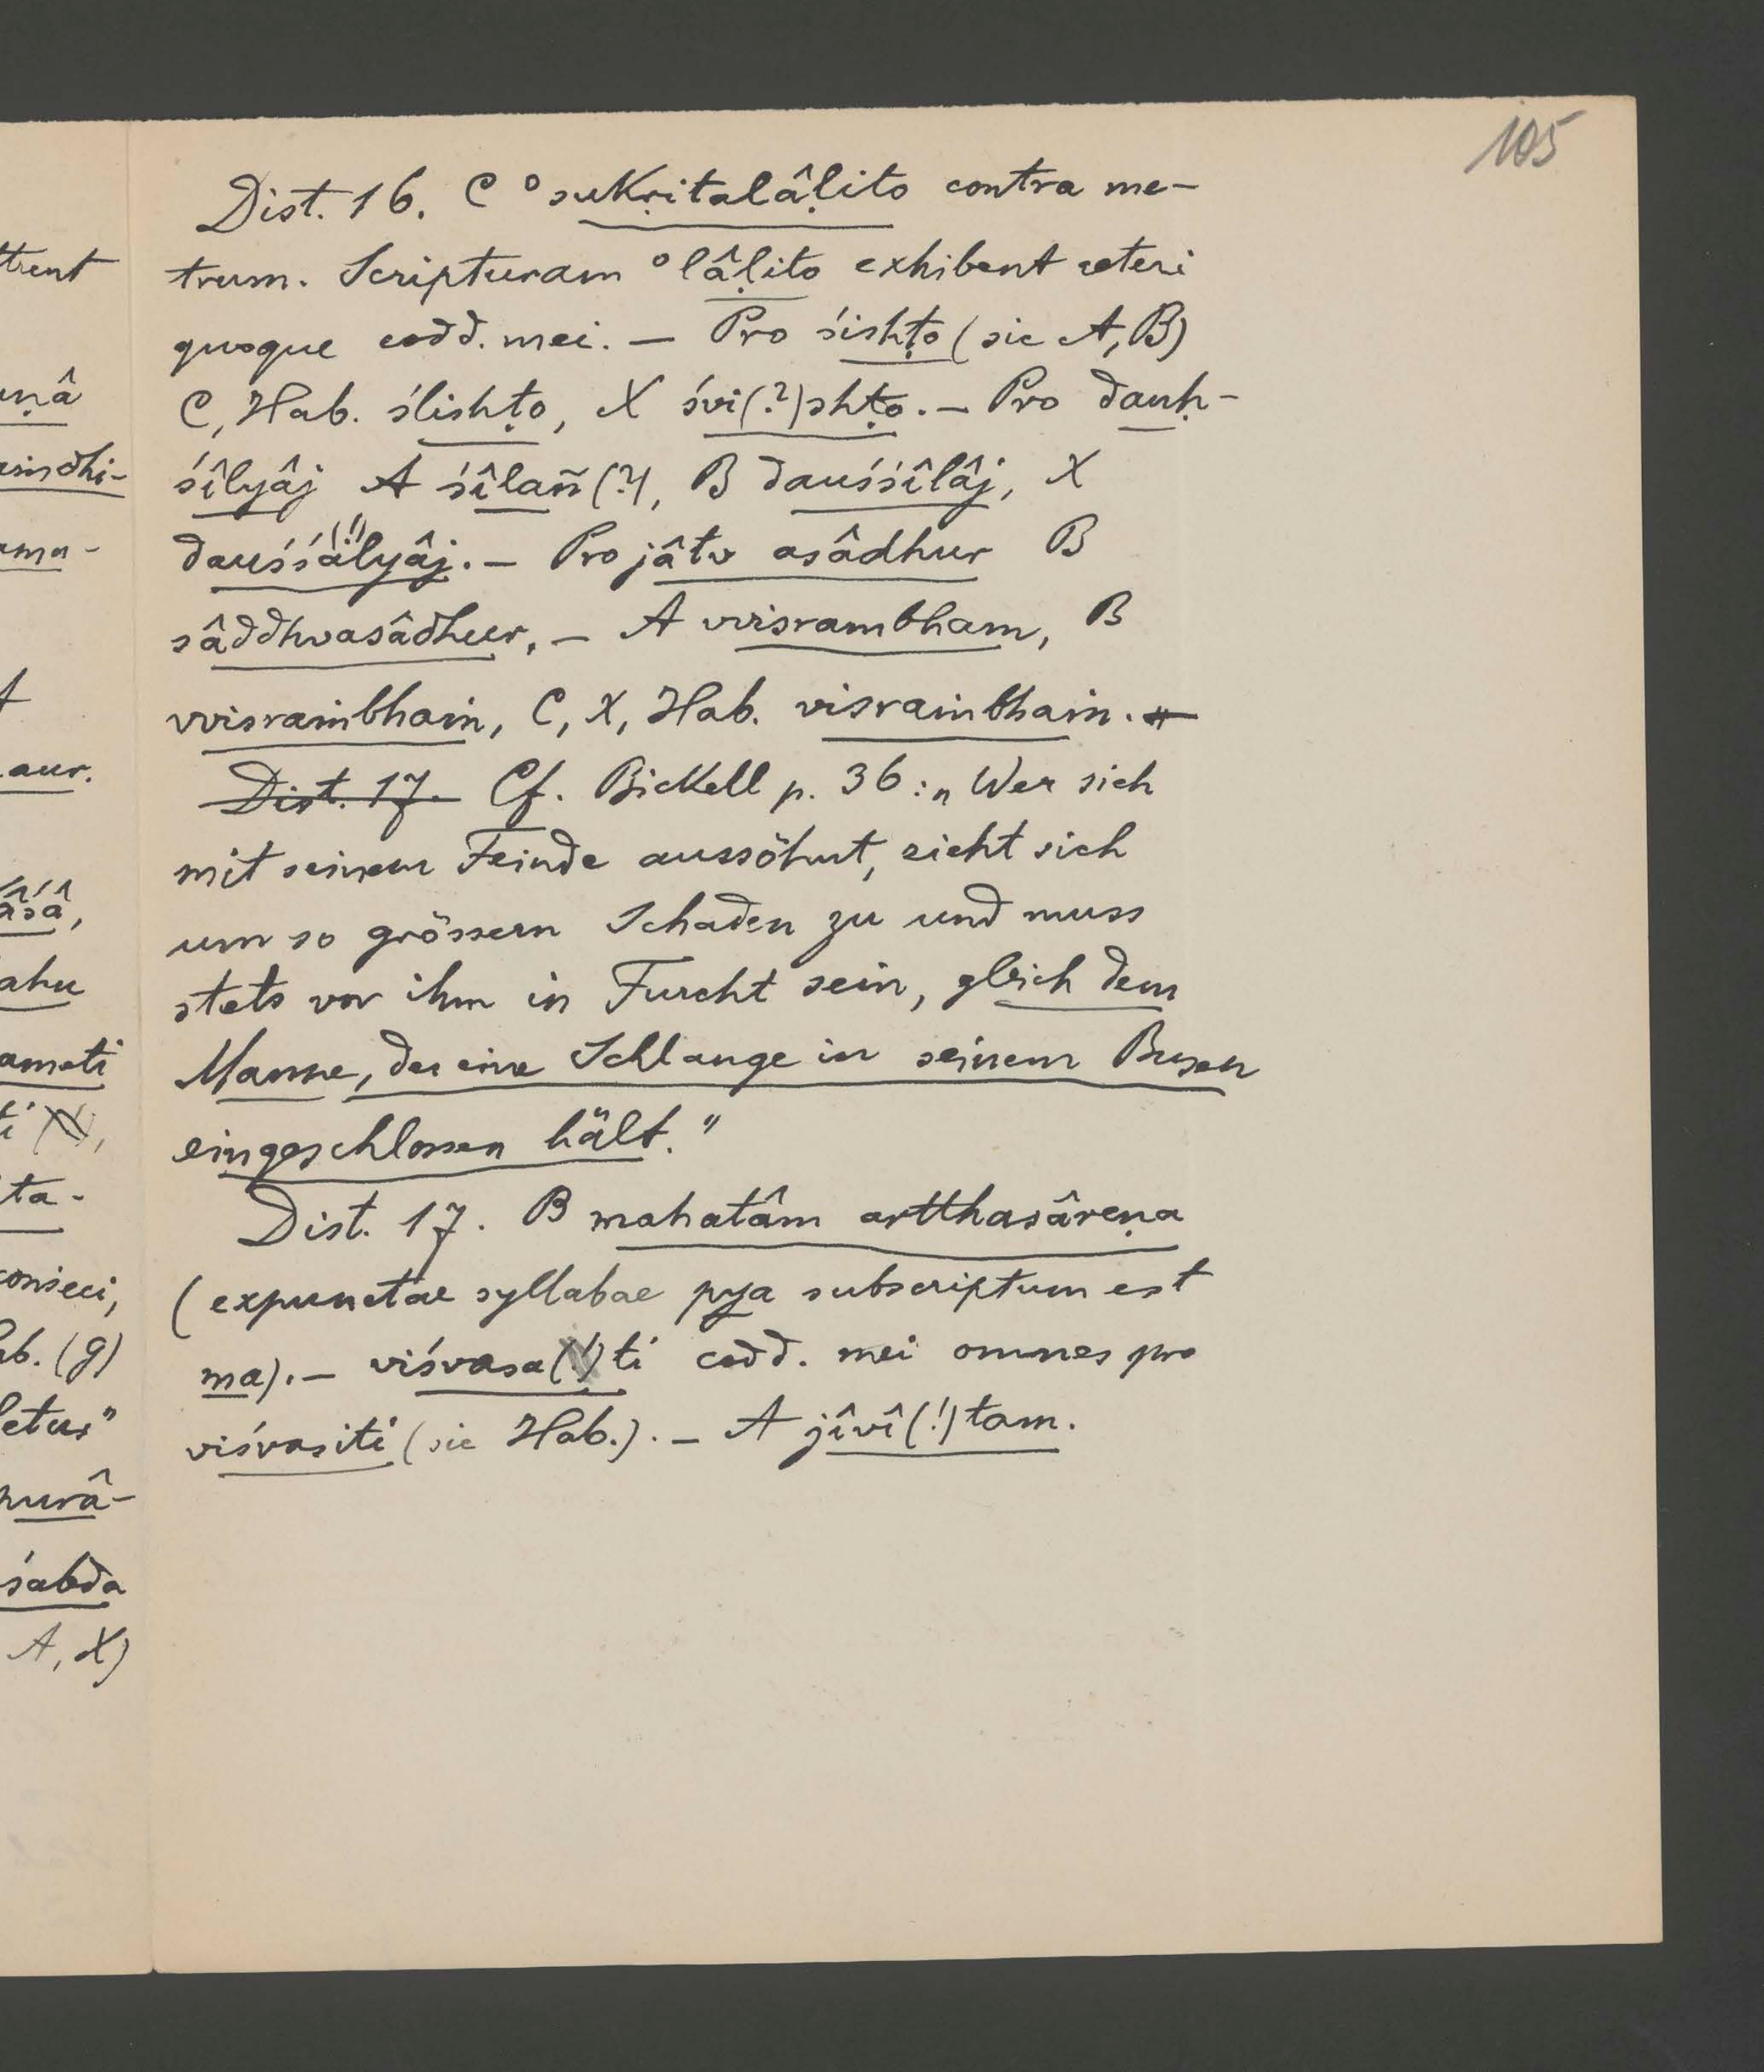 105
Dist. 16. C °sukṛitalâḷito contra me-
trum. Scripturam °lâḷito exhibent ceteri
quoque codd. mei. — Pro śishṭo (sic A, B)
C, Hab. ślishṭo, X śvi(?)shṭo. — Pro dauḥ-
śîlyâj A śîlañ(?), B dauśśîlâj, X
dauśśa(!)lyâj. — Pro jâtv asâdhur B
sâddhvasâdhur, — A vvisrambham, B
vvisraṁbhaṁ, C, X, Hab. visraṁbhaṁ. —
Dist. 17. Cf. Bickell p. 36: „Wer sich
mit seinem Feinde aussöhnt, zieht sich
um so grössern Schaden zu und muss
stets vor ihm in Furcht sein, gleich dem
Manne, der eine Schlange in seinem Busen
eingeschlossen hält."
Dist. 17. B mahatâm artthasâreṇa
(expunctae syllabae pya subscriptum est
ma). — viśvasa(!)ti codd. mei omnes pro
viśvasiti (sic Hab.). — A jîvî(!)tam.
ttrent
unâ
asindhi-
ama-
A
aur.
âśâ,
ahu
amati
ti
ta-
conseci,
ab. (g)
letus"
purâ-
śabda
A, X)